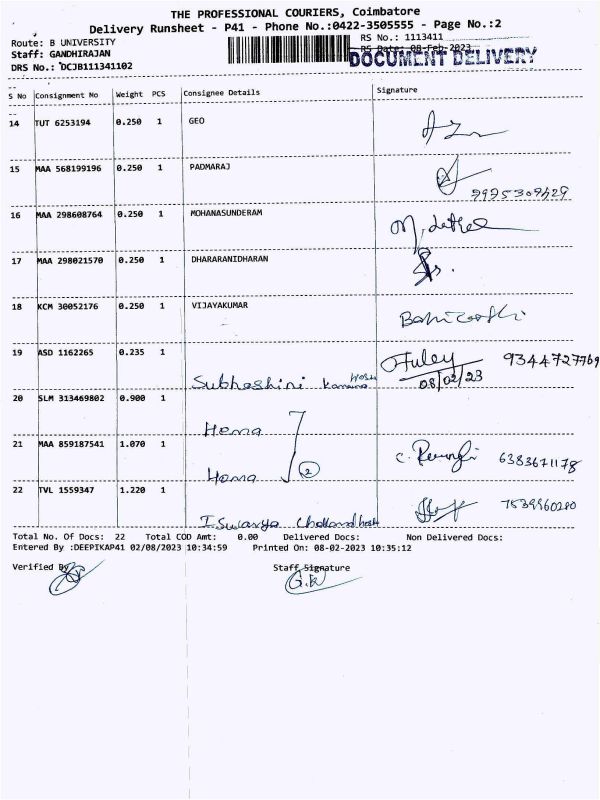 THE PROFESSIONAL COURIERS, Coimbatore
Delivery Runsheet - P41 - Phone No.:0422-3505555 - Page No.:2
Route: B UNIVERSITY
RS No.: 1113411
Staff: GANDHIRAJAN
RS Date: 08-Feb-2023
DOCUMENT DELIVERY
DRS No.: DCJB111341102
S No Consignment No Weight PCS Consignee Details Signature
14 TUT 6253194 0.250 1 GEO
15 MAA 568199196 0.250 1 PADMARAJ
16 MAA 298608764 0.250 1 MOHANASUNDERAM
17 MAA 298021570 0.250 1 DHARARANIDHARAN
18 KCM 30052176 0.250 1 VIJAYAKUMAR
19 ASD 1162265 0.235 1 Subhashini 9344727769
08/02/23
20 SLM 313469802 0.900 1 Hema
21 MAA 859187541 1.070 1 Hema 2 6383671178
22 TVL 1559347 1.220 1 7539960280
Total No. Of Docs: 22 Total COD Amt: 0.00 Delivered Docs: Non Delivered Docs:
Entered By :DEEPIKAP41 02/08/2023 10:34:59 Printed On: 08-02-2023 10:35:12
Verified By
Staff Signature